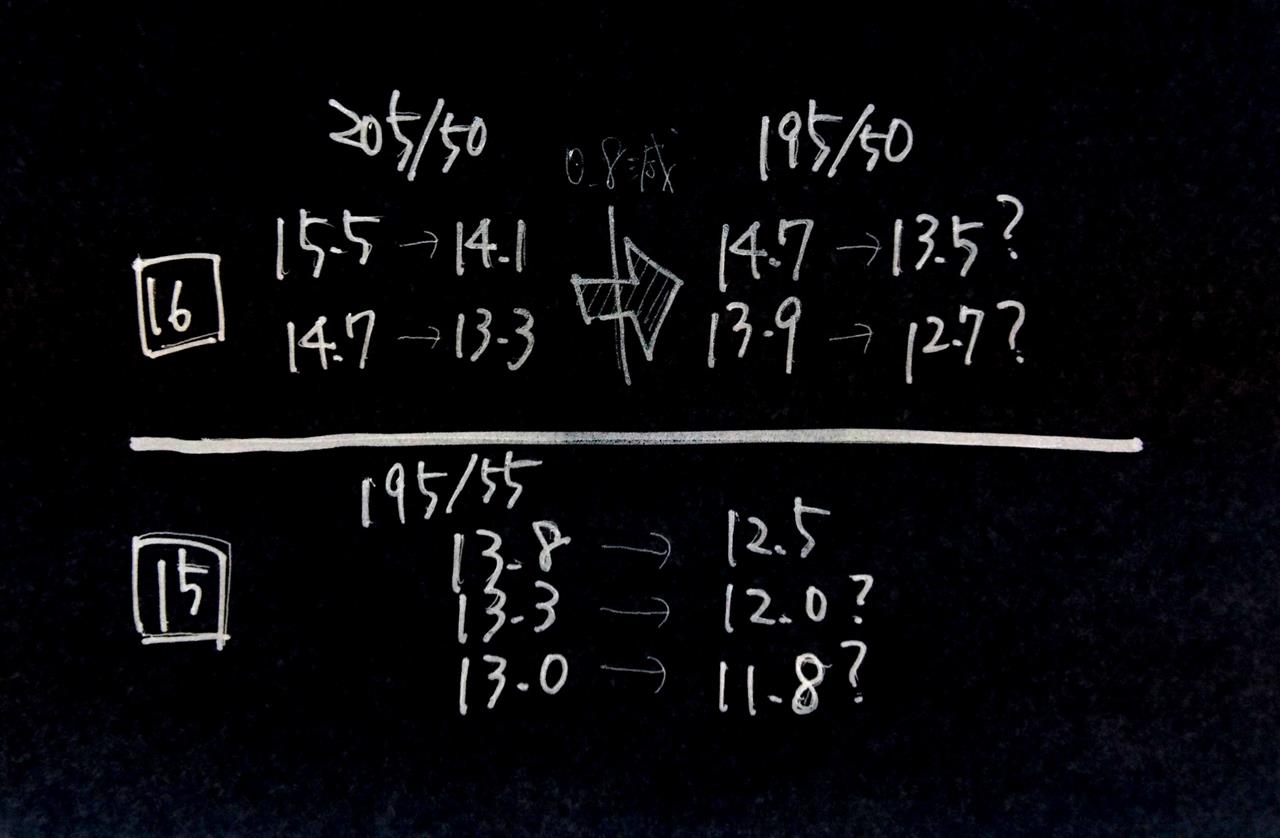 205/50 0.8減 195/50
15.5 → 14.1 14.7 → 13.5?
16
14.7 → 13.3 13.9 → 12.7?
195/55
13.8 → 12.5
15
13.3 → 12.0?
13.0 → 11.8?